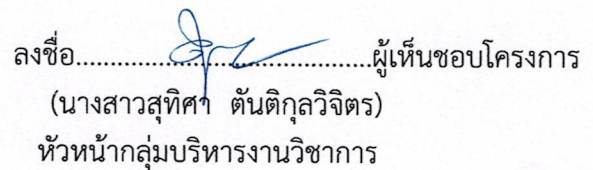 ลงชื่อ......................................ผู้เห็นชอบโครงการ
(นางสาวสุทิศา ตันติกุลวิจิตร)
หัวหน้ากลุ่มบริหารงานวิชาการ